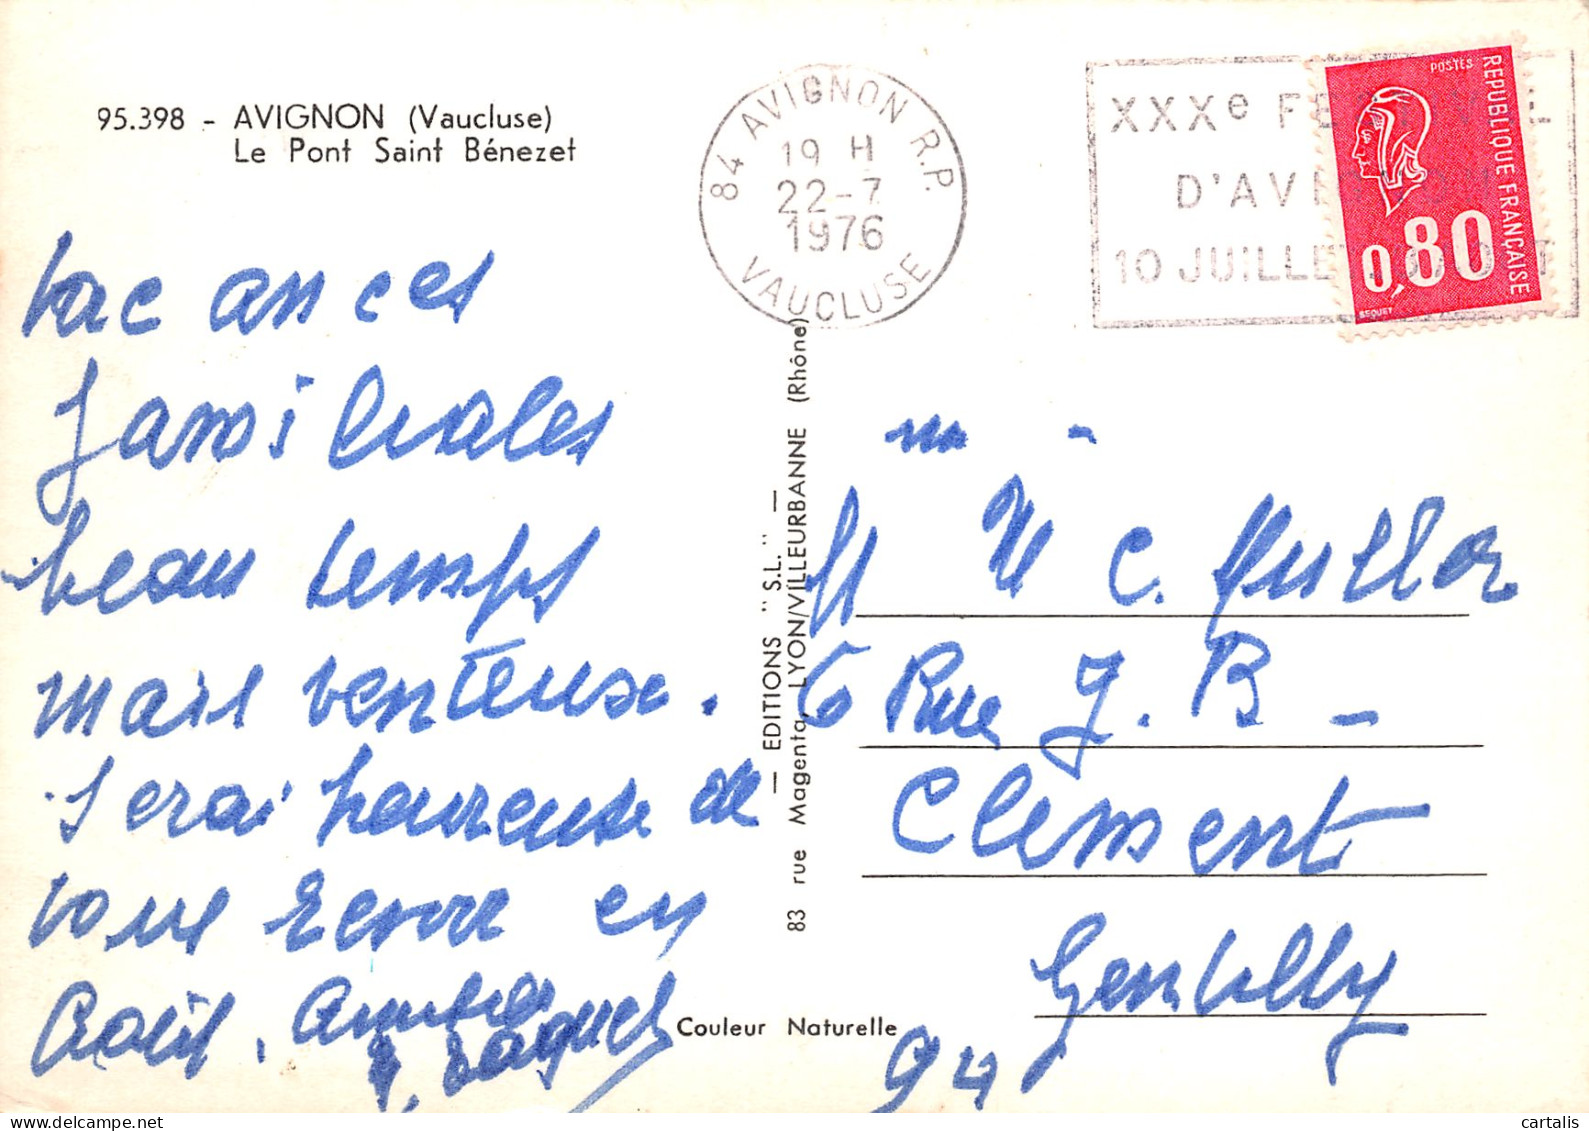 95.398 - AVIGNON (Vaucluse)
Le Pont Saint Bénezet
84 AVIGNON R.P.
19 H
22-7
1976
VAUCLUSE
XXXe
D'AVI
10 JUILLE
POSTES
REPUBLIQUE FRANÇAISE
0,80
BEQUET
vacances
familiales
beau temps
mais venteuse.
serai heureuse de
vous revoir en
Août. Amitiés
— EDITIONS "S.L." —
83 rue Magenta, LYON/VILLEURBANNE (Rhône)
M C.
6 Rue J. B -
Clement
Gentilly
94
Couleur Naturelle
cartalis